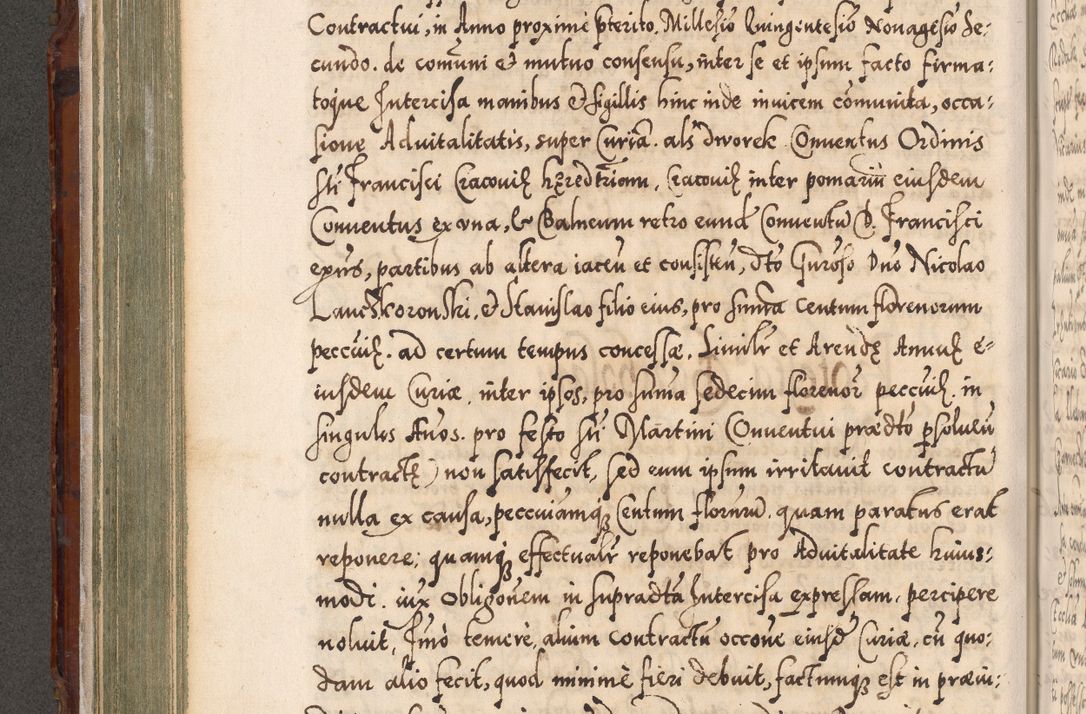 Contractui, in Anno proximè p̃terito. Millesĩo Quingentesĩo Nonagesĩo Se-
cundo. de comũni et mutuo consensu, inter se et ipsum facto firma-
toq̃ue Intercisa manibus et sigillis hinc inde invicem com̃unita, occa-
sione Aduitalitatis, super Curia. als dworek Conuentus Ordinis
Sti Francisci Cracouiẽ hæredtr̃iam, Cracouiẽ inter pomariũ eiusdem
Conuentus ex vna, & Balneum retro eund̃ Conuentũ D. Francisci
exñs, partibus ab altera iaceñ et consisteñ, dto Gñroso Dño Nicolao
Lanczkoronski, et Stanislao filio eius, pro sum̃a Centum florenorum
peccuñ. ad certum tempus concessæ. Similr et Arendæ Annuæ e-
iusdem Curiæ, inter ipsos, pro sum̃a sedecim florenor̃ peccuñ. in
singulos Años. pro festo Sti Martini Conuentui prædto p̱solueñ
contractæ) non satisfecit, sed eum ipsum irritauit contractũ
nulla ex causa, peccuiamq̃ Centum florũrũ, quam paratus erat
reponere; quamq̃ effectualr reponebat pro Aduitalitate huius-
modi. iux Obligõnem in supradta Intercisa expressam, percipere
noluit, Imò temerè, alium Contractũ occõne eiusd̃ Curiæ, cũ quo-
dam alio fecit, quod minimè fieri debuit, factumq̃ est in præui-